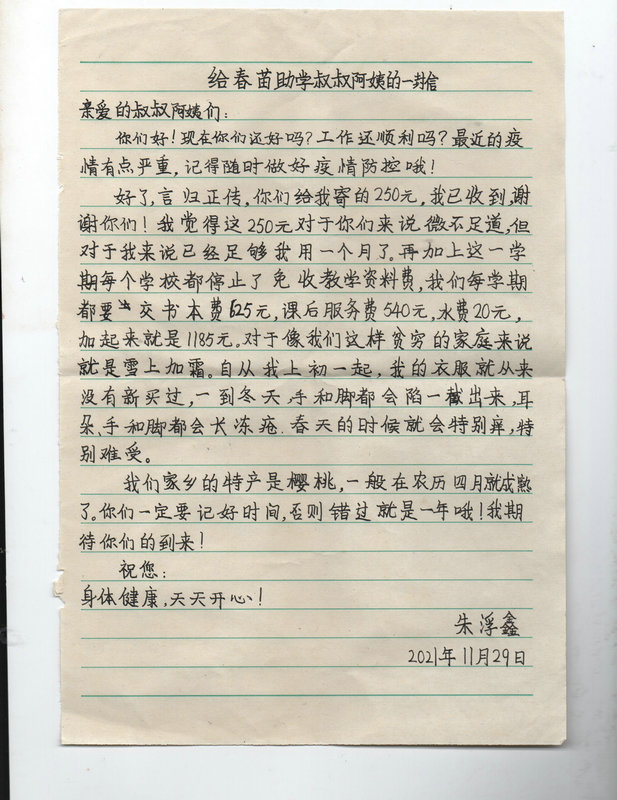 给春苗助学叔叔阿姨的一封信
亲爱的叔叔阿姨们：
你们好！现在你们还好吗？工作还顺利吗？最近的疫
情有点严重，记得随时做好疫情防控哦！
好了，言归正传，你们给我寄的250元，我已收到，谢
谢你们！我觉得这250元对于你们来说微不足道，但
对于我来说已经足够我用一个月了。再加上这一学
期每个学校都停止了免收教学资料费，我们每学期
都要交书本费625元，课后服务费540元，水费20元，
加起来就是1185元。对于像我们这样贫穷的家庭来说
就是雪上加霜。自从我上初一起，我的衣服就从来
没有新买过，一到冬天，手和脚都会陷一截出来，耳
朵、手和脚都会长冻疮.春天的时候就会特别痒，特
别难受。
我们家乡的特产是樱桃，一般在农历四月就成熟
了。你们一定要记好时间，否则错过就是一年哦！我期
待你们的到来！
祝您：
身体健康，天天开心！
朱浮鑫
2021年11月29日